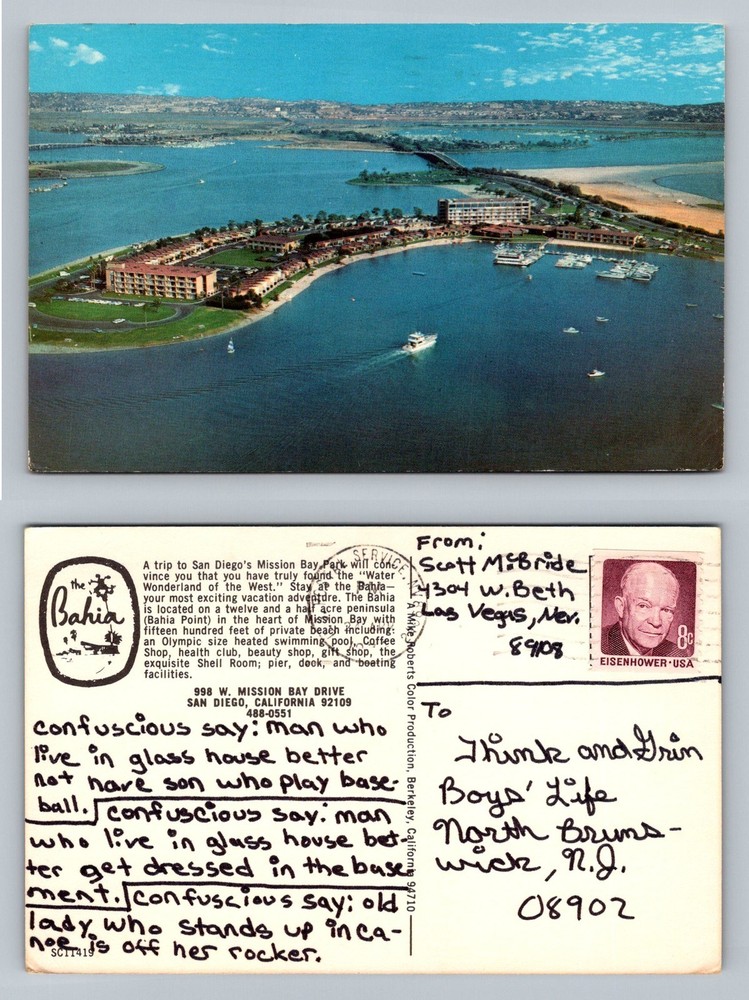 the
Bahia
A trip to San Diego's Mission Bay Park will con-
vince you that you have truly found the "Water
Wonderland of the West." Stay at the Bahia—
your most exciting vacation adventure. The Bahia
is located on a twelve and a half acre peninsula
(Bahia Point) in the heart of Mission Bay with
fifteen hundred feet of private beach including:
an Olympic size heated swimming pool, Coffee
Shop, health club, beauty shop, gift shop, the
exquisite Shell Room; pier, dock, and boating
facilities.
998 W. MISSION BAY DRIVE
SAN DIEGO, CALIFORNIA 92109
488-0551
confuscious say: man who
live in glass house better
not have son who play base-
ball. confuscious say: man
who live in glass house bet-
ter get dressed in the base-
ment. confuscious say: old
lady who stands up in ca-
noe is off her rocker.
SC11419
SERVICE
Mike Roberts Color Production, Berkeley, California 94710
From:
Scott McBride
4304 W. Beth
Las Vegas, Nev.
89108
8c
EISENHOWER·USA
To
Think and Grin
Boys' Life
North Bruns-
wick, N.J.
08902